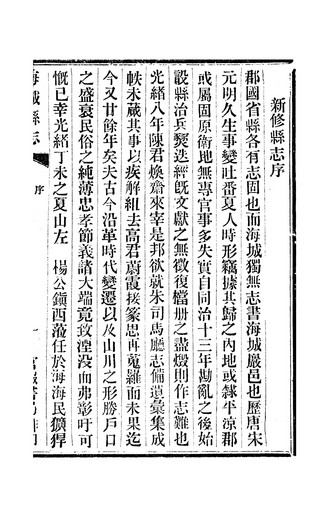 新修縣志序
郡國省縣各有志固也而海城獨無志書海城嚴邑也歷唐宋
元明久生事變吐番夏人時形竊據其歸之內地或隸平涼郡
或屬固原衛地無專官事多失實自同治十三年勘亂之後始
設縣治兵燹迭經既文獻之無徵復檔册之盡燬則作志難也
光緒八年陳君煥齋來宰是邦欲就朱司馬廳志備遺彙集成
帙未葳其事以疾解組去高君蔚霞接篆思再蒐羅而未果迄
今又廿餘年矣夫古今沿革時代變遷以及山川之形勝戶口
之盛衰民俗之純薄忠孝節義諸大端竟致湮没而弗彰吁可
慨已幸光緒丁未之夏山左 楊公鎮西蒞任於海海民獷悍
海城縣志
序
一